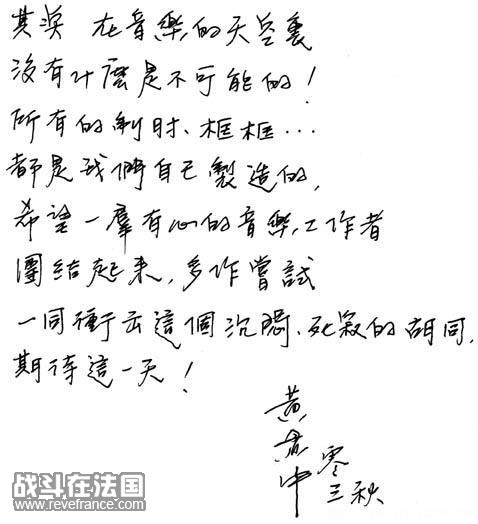 其实 在音樂的天空裏
沒有什麼是不可能的！
所有的制肘、框框…
都是我們自己製造的，
希望一羣有心的音樂工作者
團結起来，多作嘗試
一同衝出這個沉悶、死寂的胡同，
期待這一天！
黄贯中
零三秋
战斗在法国
www.revefrance.com